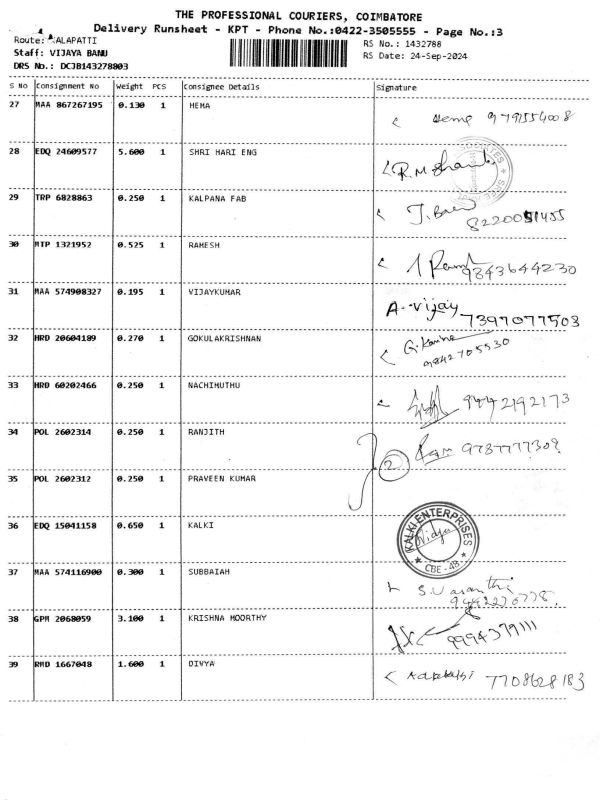 THE PROFESSIONAL COURIERS, COIMBATORE
Delivery Runsheet - KPT - Phone No.:0422-3505555 - Page No.:3
Route: KALAPATTI
RS No.: 1432788
Staff: VIJAYA BANU
RS Date: 24-Sep-2024
DRS No.: DCJB143278803
S No Consignment No Weight PCS Consignee Details Signature
27 MAA 867267195 0.130 1 HEMA
Hema 9791554008
28 EDQ 24609577 5.600 1 SHRI HARI ENG
R.M
29 TRP 6828863 0.250 1 KALPANA FAB
30 MTP 1321952 0.525 1 RAMESH
9843644230
31 MAA 574908327 0.195 1 VIJAYKUMAR
A. Vijay
7397077503
32 HRD 20604189 0.270 1 GOKULAKRISHNAN
9842705530
33 HRD 60202466 0.250 1 NACHIMUTHU
9442192173
34 POL 2602314 0.250 1 RANJITH
2 Ram
35 POL 2602312 0.250 1 PRAVEEN KUMAR
36 EDQ 15041158 0.650 1 KALKI
KALKI ENTERPRISES
Vidya
CBE - 48
37 MAA 574116900 0.300 1 SUBBAIAH
S. Vasanthi
38 GPM 2068059 3.100 1 KRISHNA MOORTHY
9994379111
39 RMD 1667048 1.600 1 DIVYA
7708628183